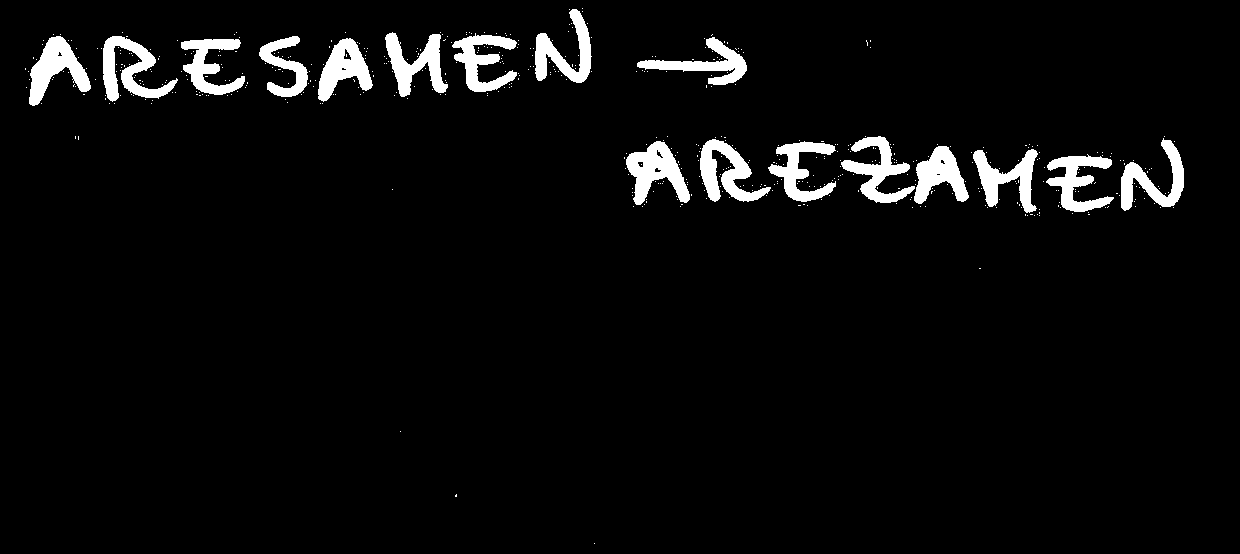 ARESAMEN →
AREZAMEN